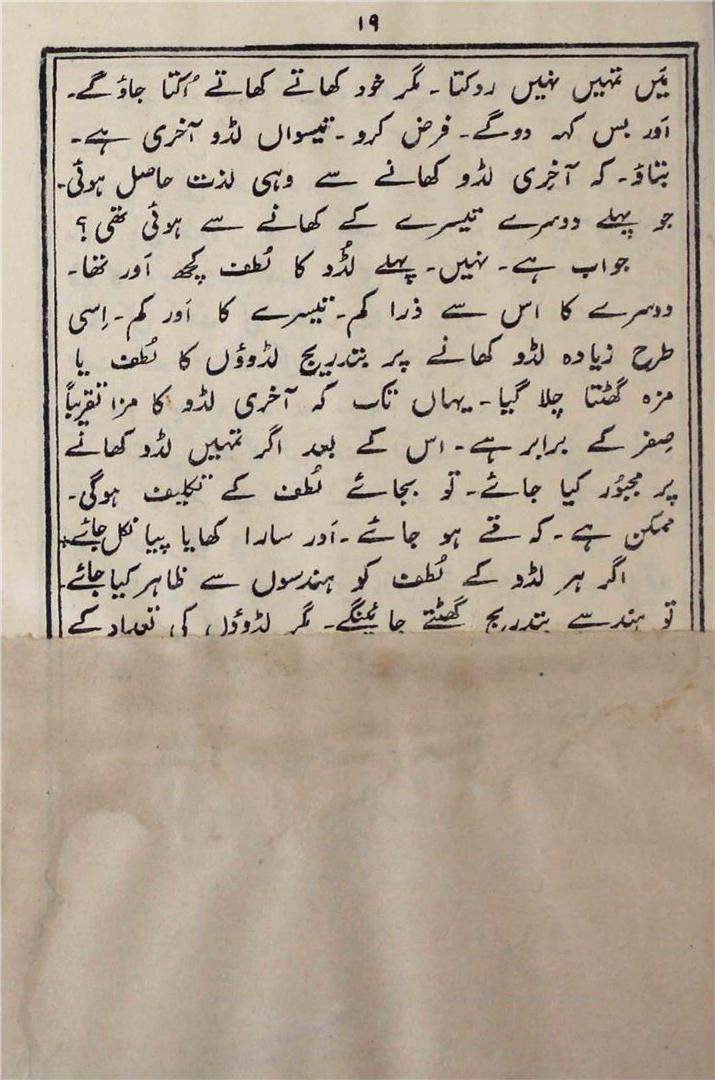 ۱۹
مَیں تمہیں نہیں روکتا۔ مگر خود کھاتے کھاتے اُکتا جاؤ گے۔
اَور بس کہہ دو گے۔ فرض کرو۔ تیسواں لڈو آخری ہے۔
بتاؤ۔ کہ آخِری لڈو کھانے سے وہی لذت حاصل ہوئی۔
جو پہلے دوسرے تیسرے کے کھانے سے ہوئی تھی؟
جواب ہے۔ نہیں۔ پہلے لڈو کا لُطف کچھ اَور تھا۔
دوسرے کا اس سے ذرا کم۔ تیسرے کا اَور کم۔ اِسی
طرح زیادہ لڈو کھانے پر بتدریج لڈوؤں کا لُطف یا
مزہ گھٹتا چلا گیا۔ یہاں تک کہ آخری لڈو کا مزا تقریباً
صِفر کے برابر ہے۔ اس کے بعد اگر تمہیں لڈو کھانے
پر مجبُور کیا جائے۔ تو بجائے لُطف کے تکلیف ہوگی۔
ممکن ہے۔ کہ قے ہو جائے۔ اَور سارا کھایا پیا نکل جائے۔
اگر ہر لڈو کے لُطف کو ہندسوں سے ظاہر کیا جائے۔
تو ہندسے بتدریج گھٹتے جائینگے۔ مگر لڈوؤں کی تعداد کے